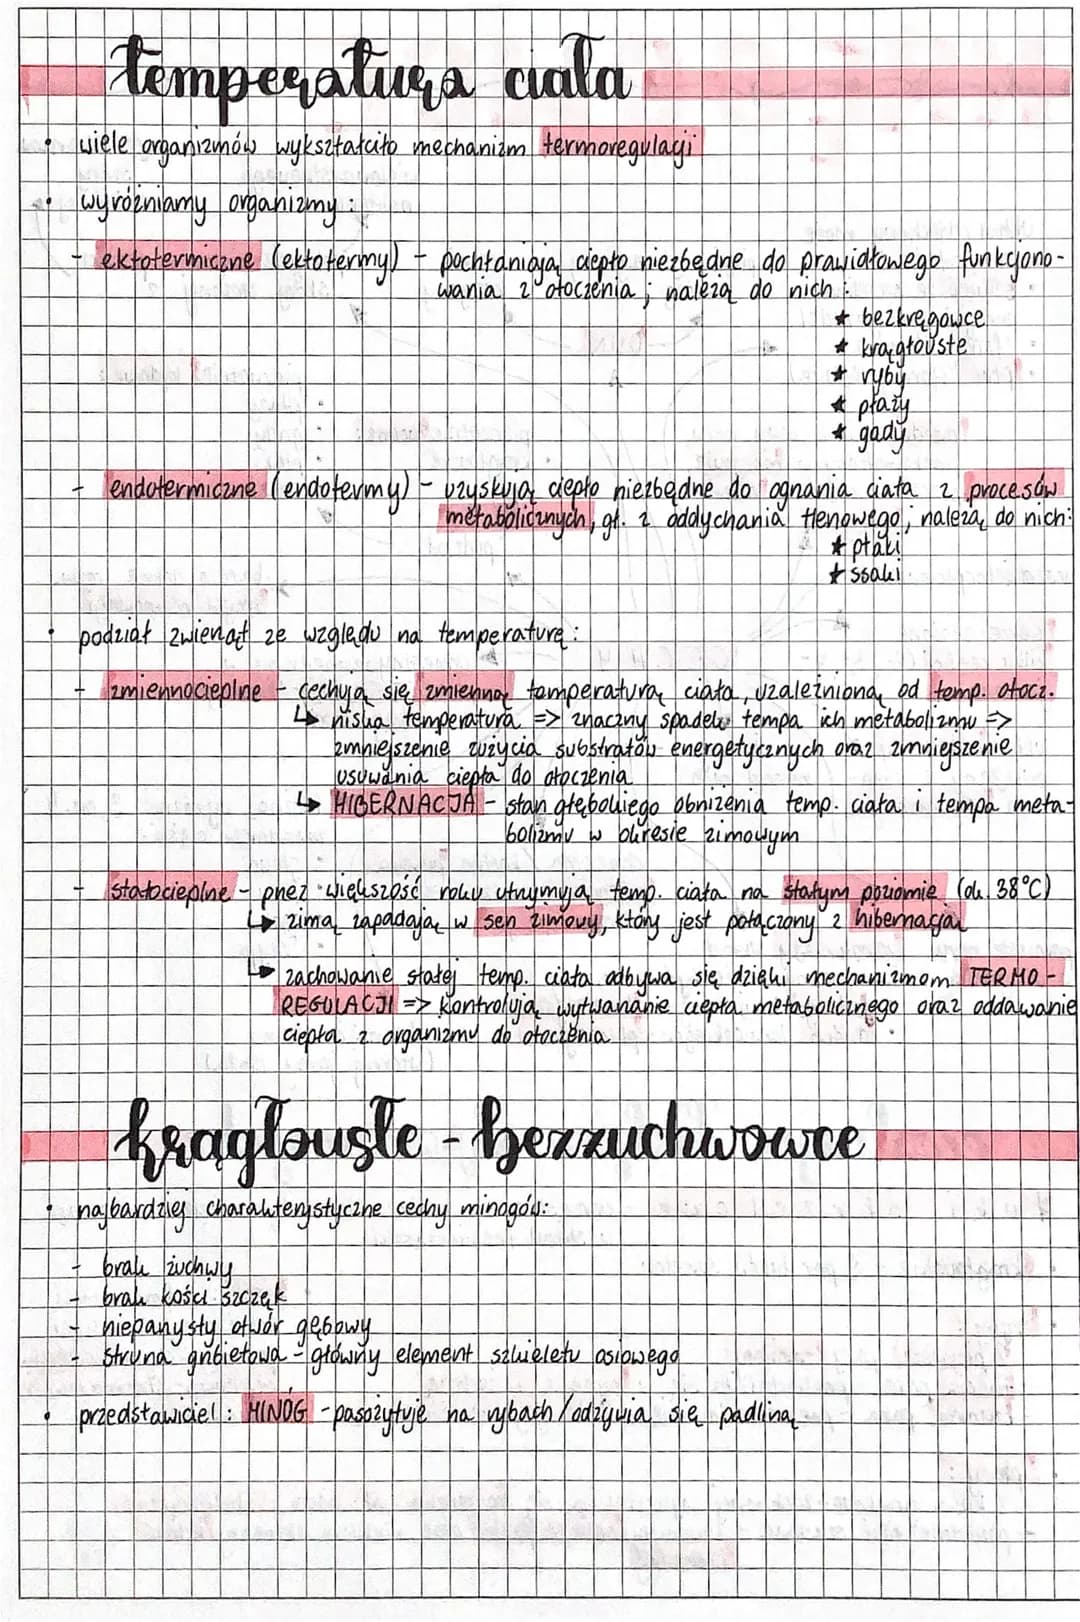 temperatura ciała
• wiele organizmów wykształciło mechanizm termoregulacji
• wyróżniamy organizmy:
- ektotermiczne (ektotermy) - pochłaniają ciepło niezbędne do prawidłowego funkcjono-
wania z otoczenia; należą do nich:
★ bezkręgowce
★ krągłouste
★ ryby
★ płazy
★ gady
- endotermiczne (endotermy) - uzyskują ciepło niezbędne do ogrzania ciała z procesów
metabolicznych, gł. z oddychania tlenowego; należą do nich:
★ ptaki
★ ssaki
• podział zwierząt ze względu na temperaturę:
- zmiennocieplne - cechują się zmienną temperaturą ciała, uzależnioną od temp. otocz.
↳ niska temperatura => znaczny spadek tempa ich metabolizmu =>
zmniejszenie zużycia substratów energetycznych oraz zmniejszenie
usuwania ciepła do otoczenia
↳ HIBERNACJA - stan głębokiego obniżenia temp. ciała i tempa meta-
bolizmu w okresie zimowym
- stałocieplne - przez większość roku utrzymują temp. ciała na stałym poziomie (ok. 38°C)
↳ zimą zapadają w sen zimowy, który jest połączony z hibernacją
↳ zachowanie stałej temp. ciała odbywa się dzięki mechanizmom TERMO-
REGULACJI => kontrolują wytwarzanie ciepła metabolicznego oraz oddawanie
ciepła z organizmu do otoczenia
krągłouste - bezżuchwowce
• najbardziej charakterystyczne cechy minogów:
- brak żuchwy
- brak kości szczęk
- nieparzysty otwór gębowy
- struna grzbietowa - główny element szkieletu osiowego
• przedstawiciel: MINÓG - pasożytuje na rybach/odżywia się padliną